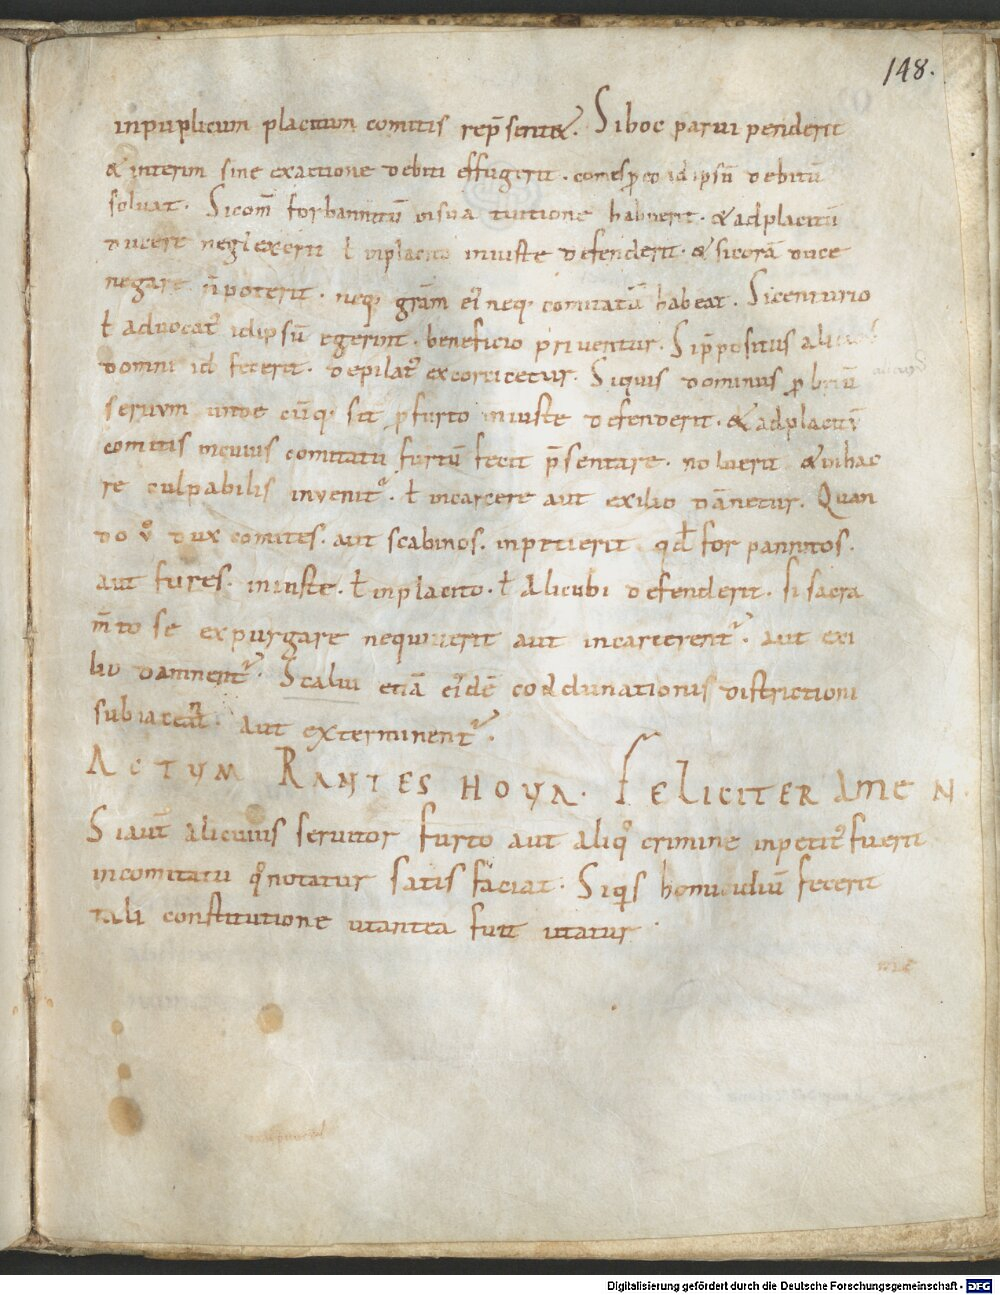 148.
inpuplicum placitum comitis rep̄sent&. Si hoc parui penderit
& interim sine exactione debiti effugerit. comes ꝓ eo id ipsū debitū
soluat. Si com̄ forbannitū in sua tuitione habuerit. & ad placitū
ducere neglexerit ł inplacito iniuste defenderit. & si corā duce
negare n̄ poterit. neq; grām ei᷒ neq; comitatū habeat. Si centurio
ł aduocat᷒ id ipsū egerint. beneficio priuentur. Si p̄positus
domni id fecerit. depilat᷒ excorticetur. Siquis dominus ꝓbriū
seruum unde cūq; sit ꝓ furto iniuste defenderit. & ad placitū
comitis in cuius comitatu furtū fecit p̄sentare. noluerit & in hac
re culpabilis inuenit᷑. ł in carcere aut exilio dānetur. Quan
do v̊ dux comites. aut scabinos. inpetierit qd̄ for pannitos.
aut fures. iniuste. ł inplacito. ł alicubi defenderit. si sacra
m̄to se expurgare nequiuerit aut incarcerent᷑. aut exi
lio damnent᷑. Scalui etiā ei᷒dē coadunationis districtioni
subiaceat aut exterminent᷑.
ACTUM RANTESHOUA. FELICITER AMEN.
Si aut̄ alicuius seruitor furto aut aliq̊ crimine inpetit᷒ fuerit
in comitatu q̊ notatur satis faciat. Siq̇s homicidiū fecerit
tali constitutione ut antea fuit utatur
Digitalisierung gefördert durch die Deutsche Forschungsgemeinschaft - DFG